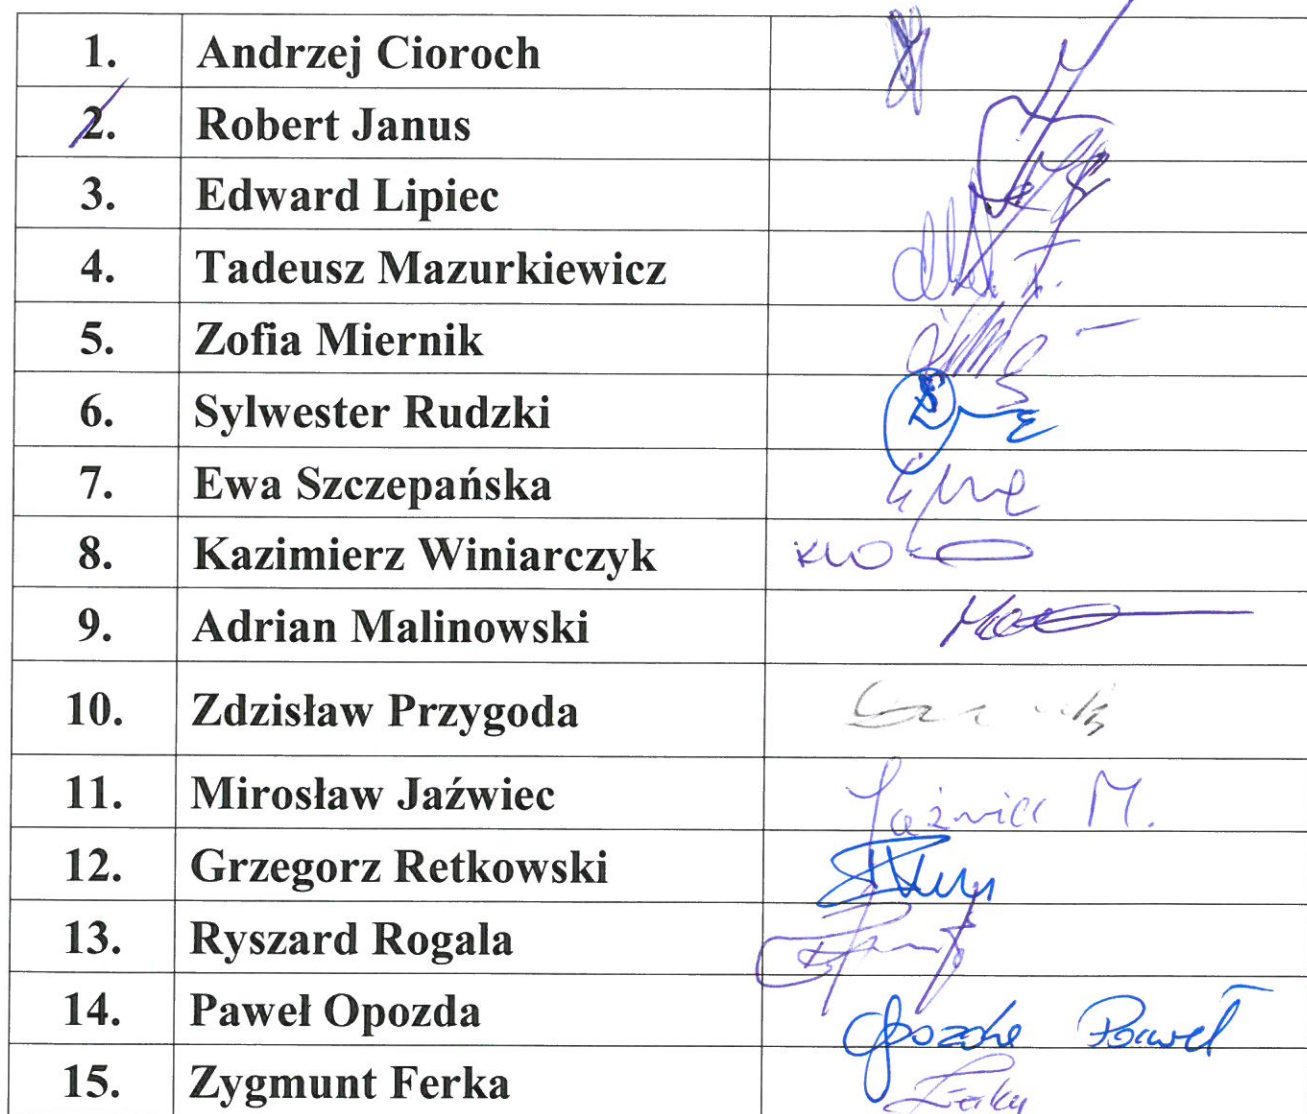 1. Andrzej Cioroch
2. Robert Janus
3. Edward Lipiec
4. Tadeusz Mazurkiewicz
5. Zofia Miernik
6. Sylwester Rudzki
7. Ewa Szczepańska
8. Kazimierz Winiarczyk
9. Adrian Malinowski
10. Zdzisław Przygoda
11. Mirosław Jaźwiec Jaźwiec M.
12. Grzegorz Retkowski
13. Ryszard Rogala
14. Paweł Opozda Opozda Paweł
15. Zygmunt Ferka